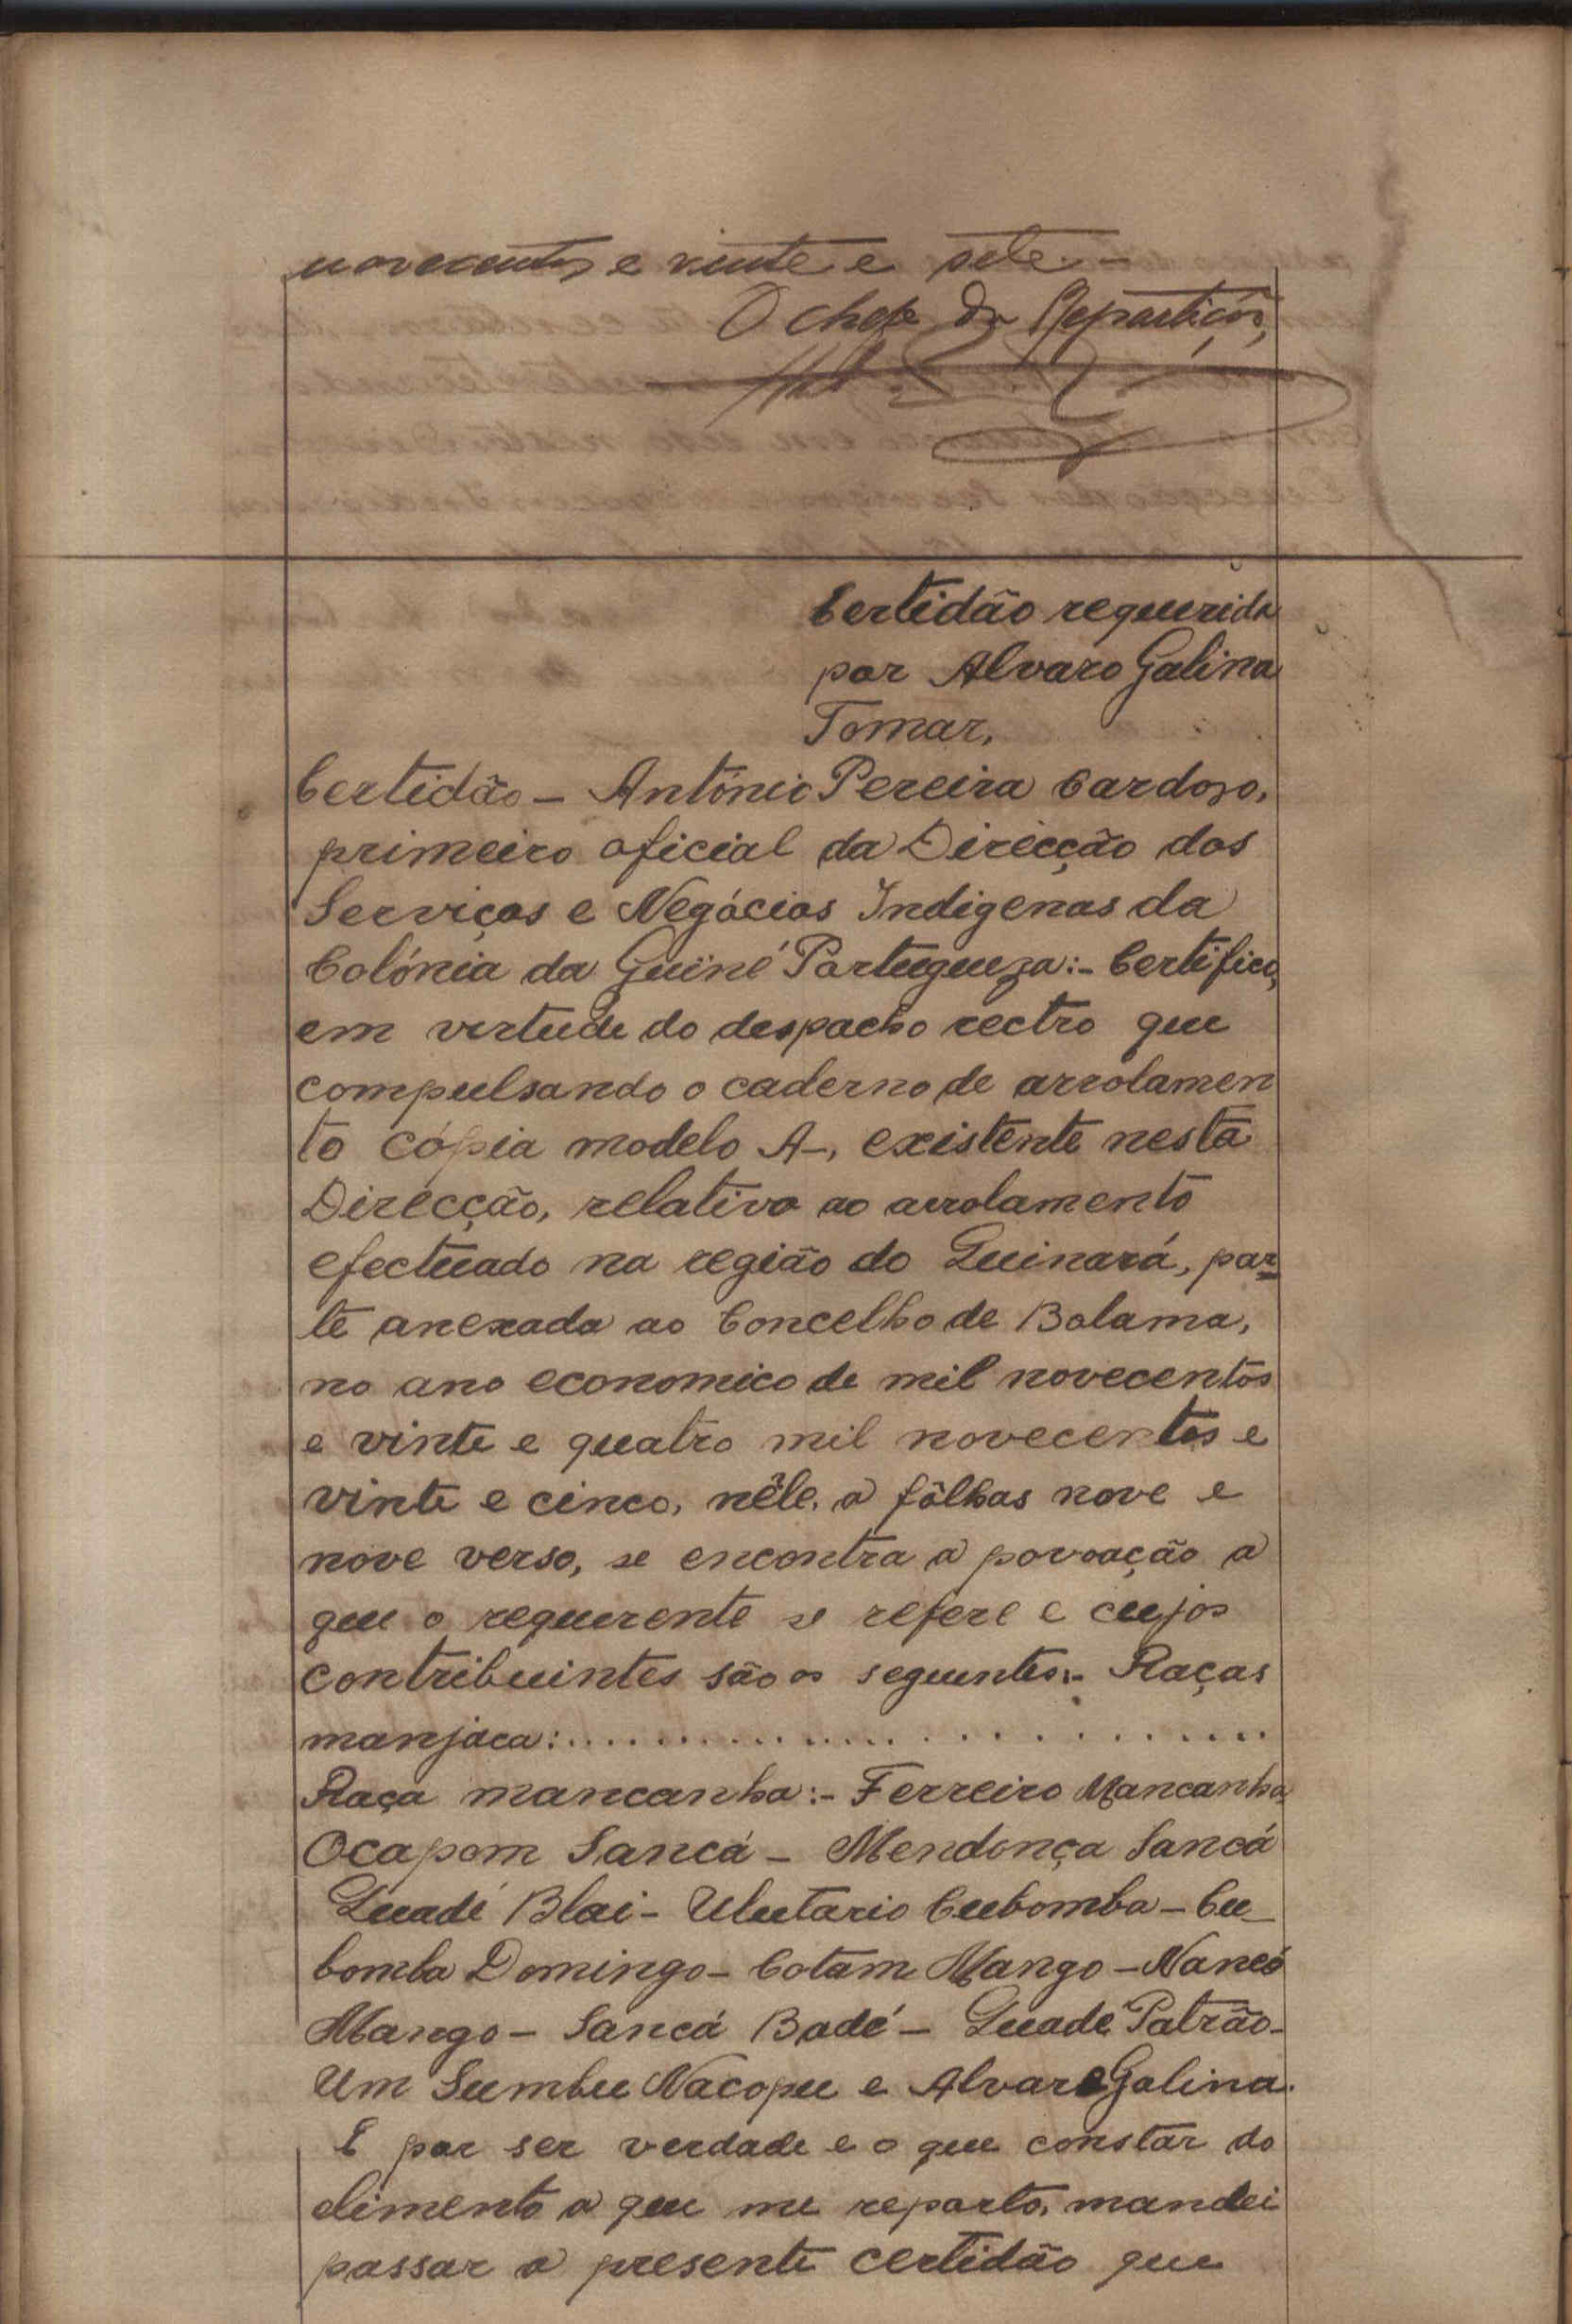 novecentos e vinte e sete.-
O chefe da Repartição,
Certidão requerida
por Alvaro Galina
Tomar,
Certidão - António Pereira Cardoso,
primeiro oficial da Direcção dos
Serviços e Negócios Indigenas da
Colónia da Guiné Portugueza:- Certifico,
em vertude do despacho rectro que
compulsando o caderno de arrolamen
to cópia modelo A-, existente nesta
Direcção, relativo ao arrolamento
efectuado na região do Quinará, par-
te anexada ao Concelho de Bolama,
no ano economico de mil novecentos
e vinte e quatro mil novecentos e
vinte e cinco, nêle, a fôlhas nove e
nove verso, se encontra a povoação a
que o requerente se refere e cujos
contribuintes são os seguintes:- Raças
manjaca:..............................
Raça mancanha:- Ferreiro Mancanha,
Ocapom Sancá - Mendonça Sancá
Quadé Blai - Ulutario Cubomba - Cu-
bomba Domingo - Cotam Mango - Nancó
Mango - Sancá Badé - Quadé Patrão-
Um Sumbu Nacopu e Alvaro Galina.
E por ser verdade e o que constar do
elimento a que me reporto, mandei
passar a presente certidão que